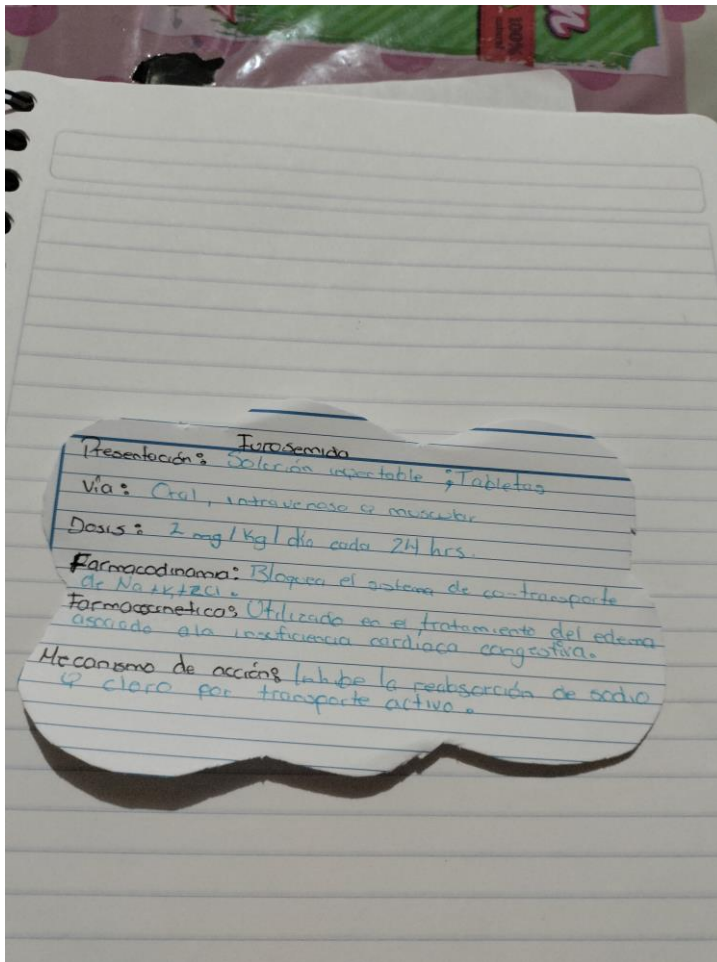 100%
Furosemida
Presentación: Solución inyectable ; Tabletas
Vía: Oral, intravenoso o muscular
Dosis: 2 mg/kg/día cada 24 hrs.
Farmacodinamia: Bloquea el sistema de co-transporte
de Na+K+2Cl.
Farmacocinetica: Utilizado en el tratamiento del edema
asociado a la insuficiencia cardiaca congestiva.
Mecanismo de acción: Inhibe la reabsorción de sodio
y cloro por transporte activo.